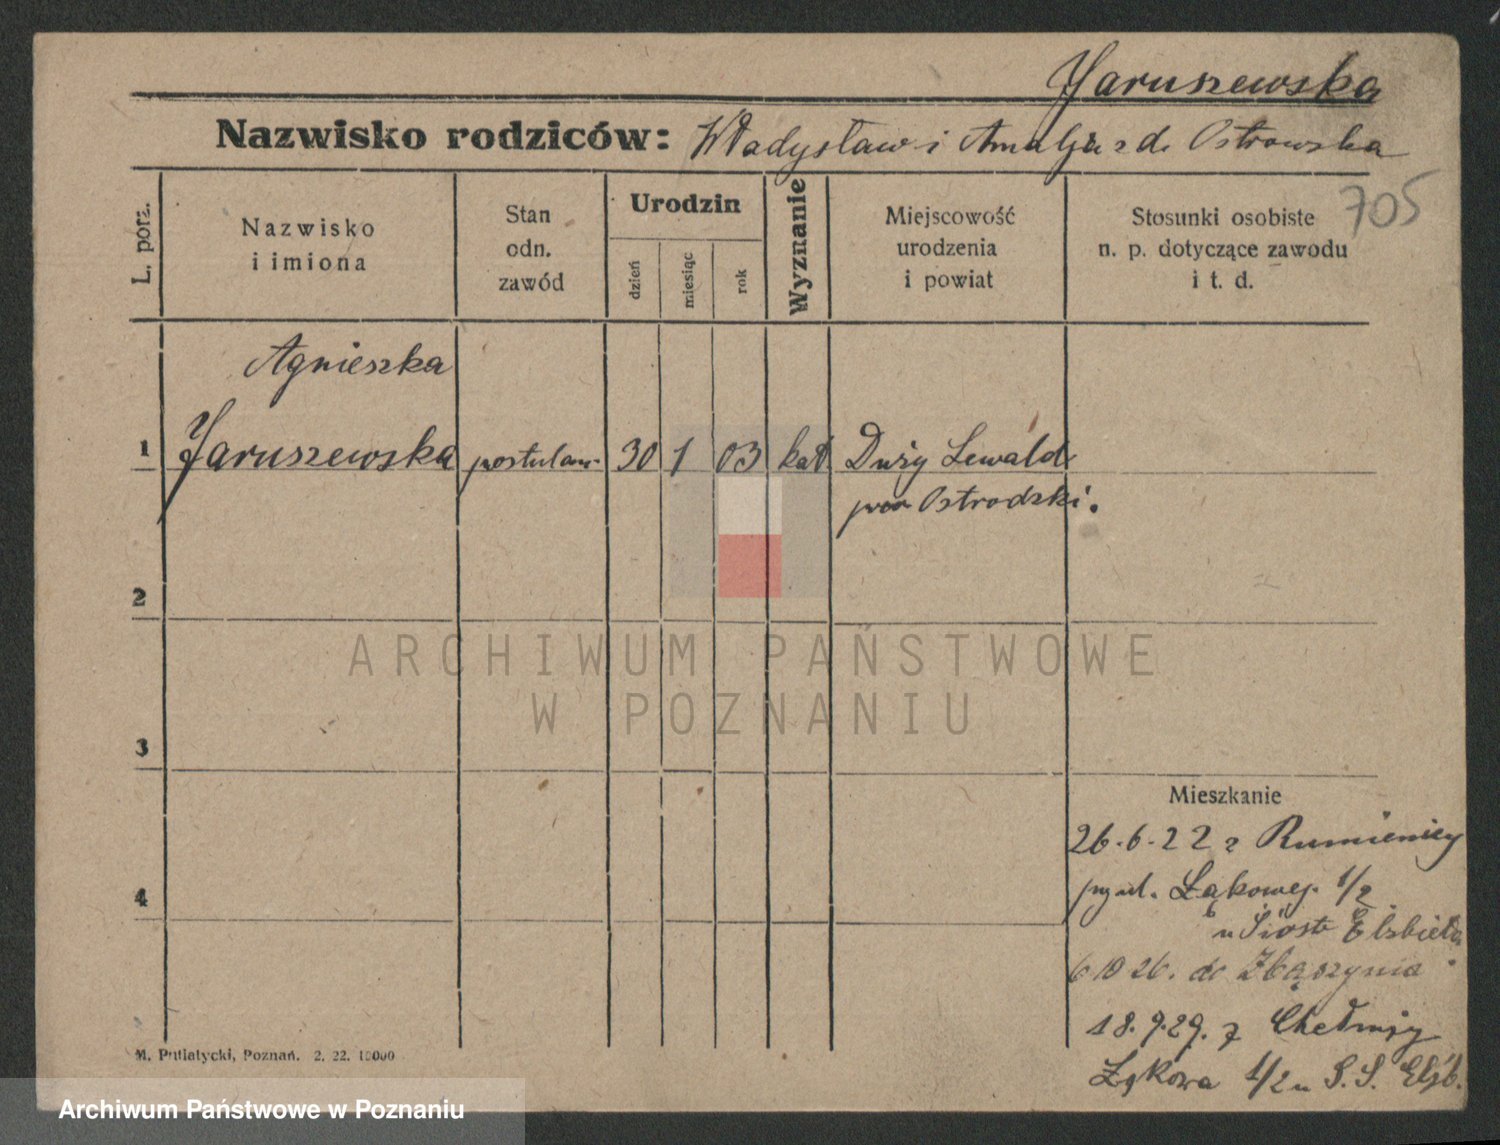 Jaruszewska
Nazwisko rodziców: Władysław i Amalja z d. Ostrowska
705
L. porz.
Nazwisko
i imiona
Stan
odn.
zawód
Urodzin
dzień
miesiąc
rok
Wyznanie
Miejscowość
urodzenia
i powiat
Stosunki osobiste
n. p. dotyczące zawodu
i t. d.
Agnieszka
1 Jaruszewska postulan. 30 1 03 kat Duży Lewald
pow Ostrodzki.
2
3
4
Mieszkanie
26.6.22 z Rumienicy
Łąkowej 1/2
u Siostr Elżbieta
6 10 26. do Zbąszynia
18.9.29. z Chełmży
Łąkowa 1/2 u S.S. Elżb.
M. Putiatycki, Poznań. 2. 22. 10000
ARCHIWUM PAŃSTWOWE
W POZNANIU
Archiwum Państwowe w Poznaniu